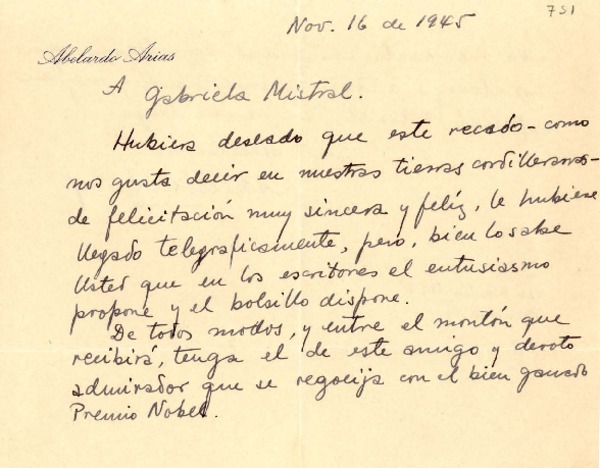 751
Nov. 16 de 1945
Abelardo Arias
A
Gabriela Mistral.
Hubiera deseado que este recado - como
nos gusta decir en nuestras tierras cordilleranas -
de felicitación muy sincera y feliz, le hubiese
llegado telegráficamente, pero, bien lo sabe
Usted que en los escritores el entusiasmo
propone y el bolsillo dispone.
De todos modos, y entre el montón que
recibirá, tenga el de este amigo y devoto
admirador que se regocija con el bien ganado
Premio Nobel.